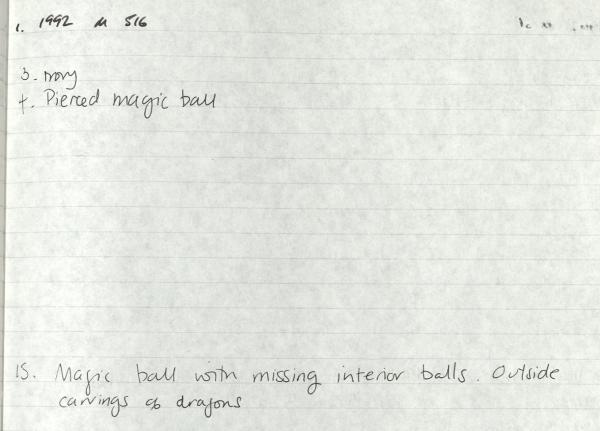 1. 1992 M 516
3. Ivory
4. Pierced magic ball
15. Magic ball with missing interior balls. Outside
carvings of dragons